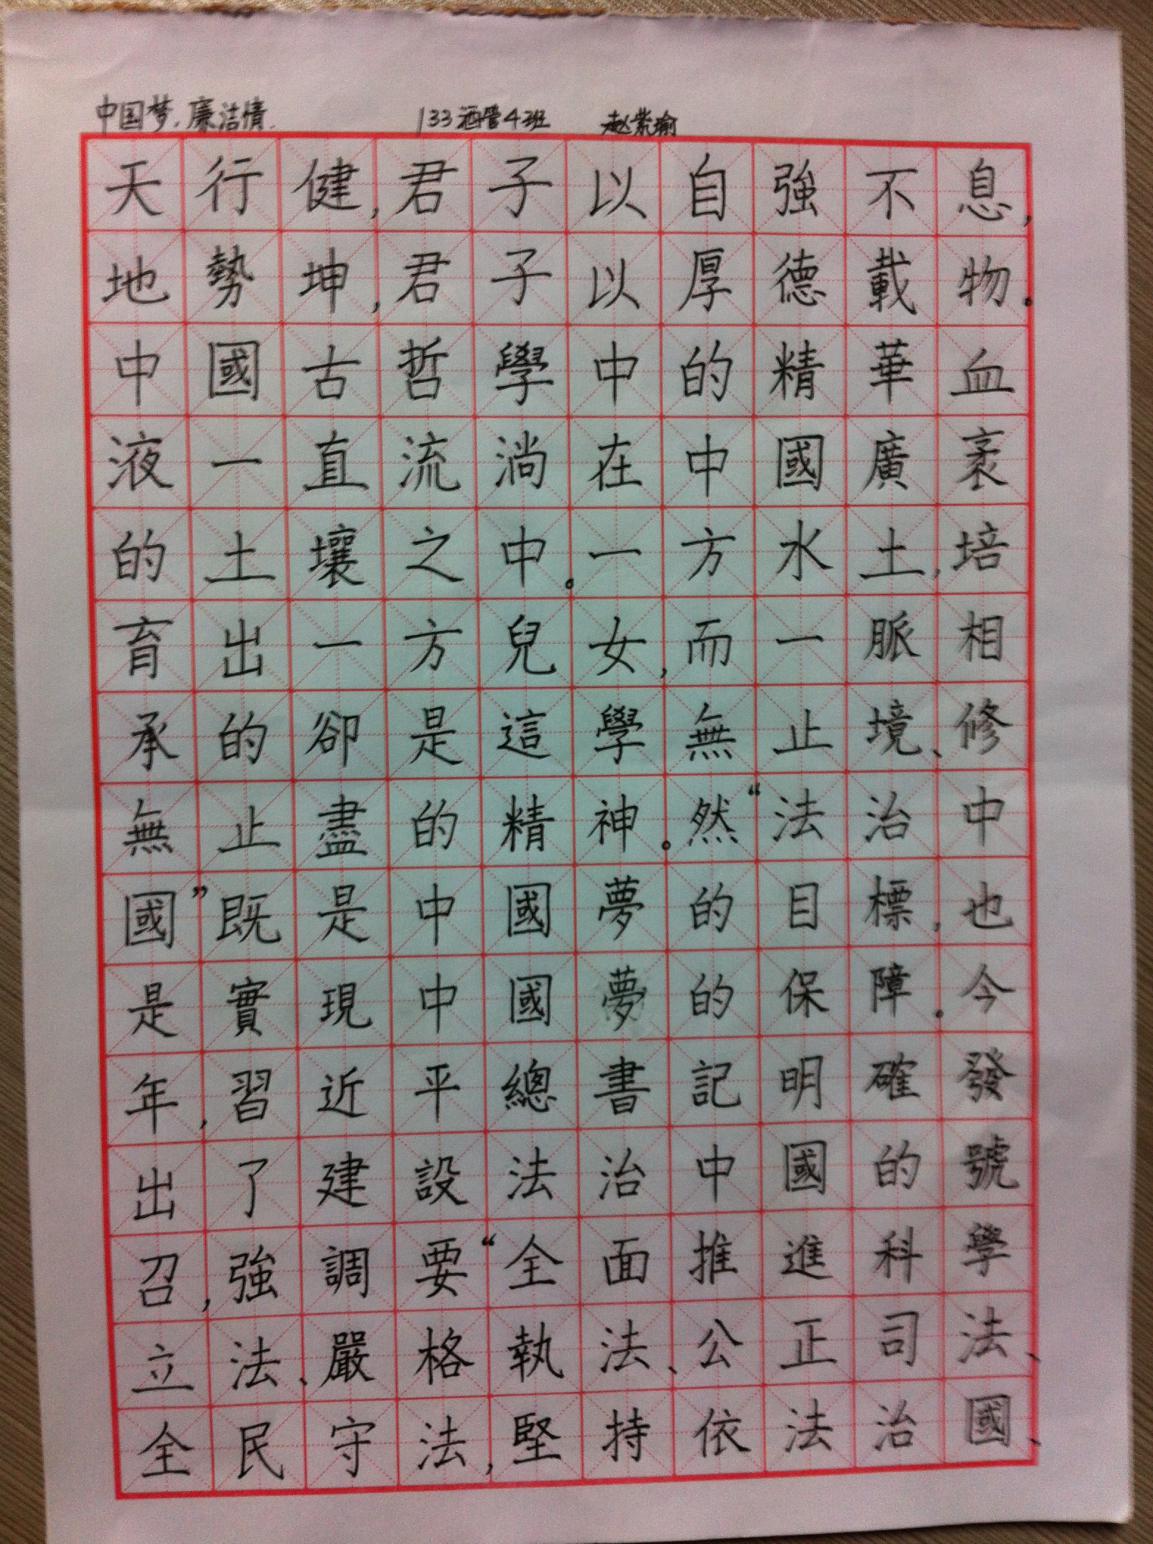 中国梦.廉洁情. 133酒管4班 赵紫瑜
天行健,君子以自強不息,
地勢坤,君子以厚德載物。
中國古哲學中的精華血
液一直流淌在中國廣袤
的土壤之中。一方水土,培
育出一方兒女,而一脈相
承的卻是這學無止境、修
無止盡的精神。然“法治中
國”既是中國夢的目標,也
是實現中國夢的保障。今
年,習近平總書記明確發
出了建設法治中國的號
召,強調要“全面推進科學
立法、嚴格執法、公正司法、
全民守法,堅持依法治國、